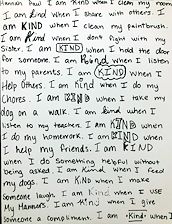 Hannah Paul I am kind when I clean my room
I am kind when I share with others I
am KIND when I clean my paintbrush
I am kind when I don't fight with my
Sister. I am KIND when I hold the door
for someone. I am kind when I listen
to my parents. I am KIND when I
Help Others. I am kind when I do my
Chores. I am KIND when I take my
dog on a walk. I am kind when I
listen to my teachers. I am KIND when
I do my homework. I am KIND when
I help my friends. I am KIND
when I do Something helpful without
being asked. I am kind when I feed
my dogs. I am KIND when I make
Someone laugh I am kind when I USE
My Manners. I am kind when I give
someone a compliment. I am Kind when I